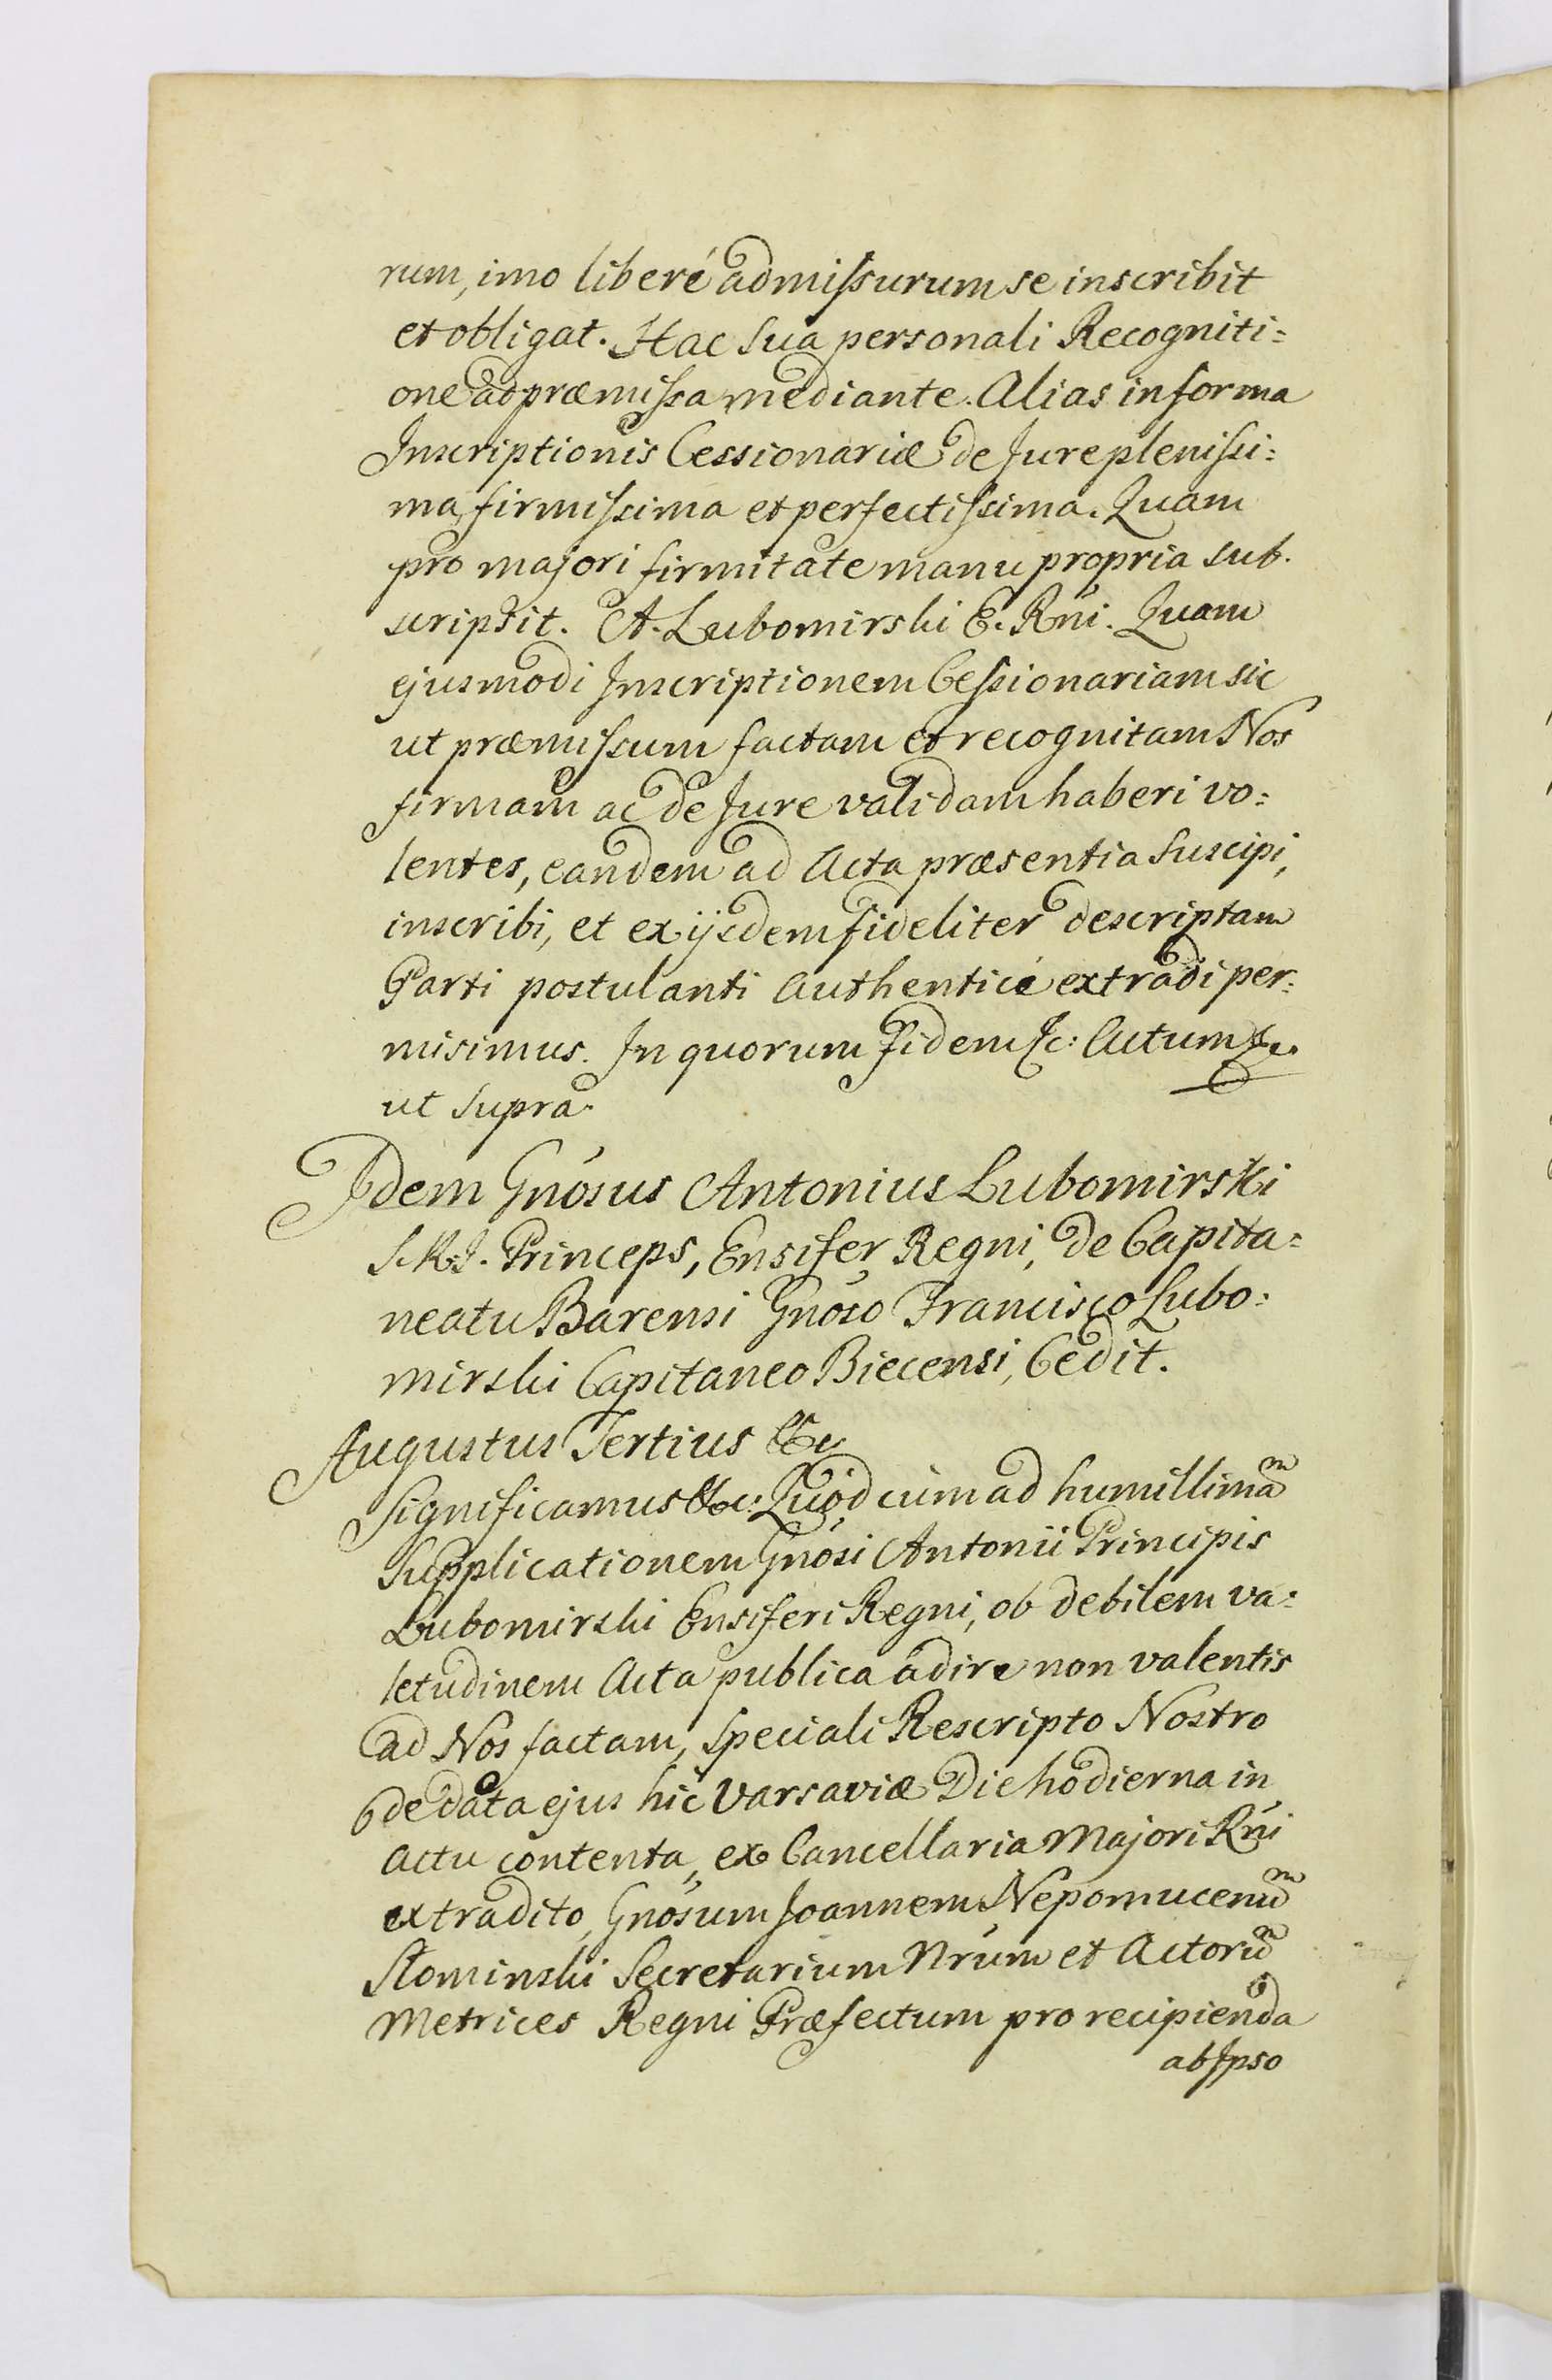 rum, imo liberé admissurum se inscribit
et obligat. Hac sua personali Recogniti=
one ad præmissa mediante. Alias in forma
Inscriptionis Cessionariæ de Jure plenissi:
ma, firmissima et perfectissima. Quam
pro majori firmitate manu propria sub.
scripsit. A. Lubomirski E. Rńi. Quam
ejusmodi Inscriptionem Cessionariam sic
ut præmissum factam et recognitam Nos
firmam ac de Jure validam haberi vo:
lentes, eandem ad Acta præsentia suscipi,
inscribi, et ex ijsdem fideliter descriptam
Parti postulanti Authenticé extradi per:
misimus. In quorum fidem &c: Actum &c.
ut supra.
Idem Gnósus Antonius Lubomirski
S.R.I. Princeps, Ensifer Regni, de Capita=
neatu Barensi Gnóso Francisco Lubo:
mirski Capitaneo Biecensi, Cedit.
Augustus Tertius &c
Significamus &c: Quód cùm ad humillimam̃
Supplicationem Gnósi Antonii Principis
Lubomirski Ensiferi Regni, ob debilem va:
letudinem Acta publica adire non valentis
ad Nos factam, speciali Rescripto Nostro
de data ejus hic Varsaviæ Die hodierna in
Actu contenta, ex Cancellaria Majori Rńi
extradito, Gnósum Joannem Nepomucenum̃
Słominski Secretarium Nrúm et Actorum̃
Metrices Regni Præfectum pro recipienda
ab Ipso